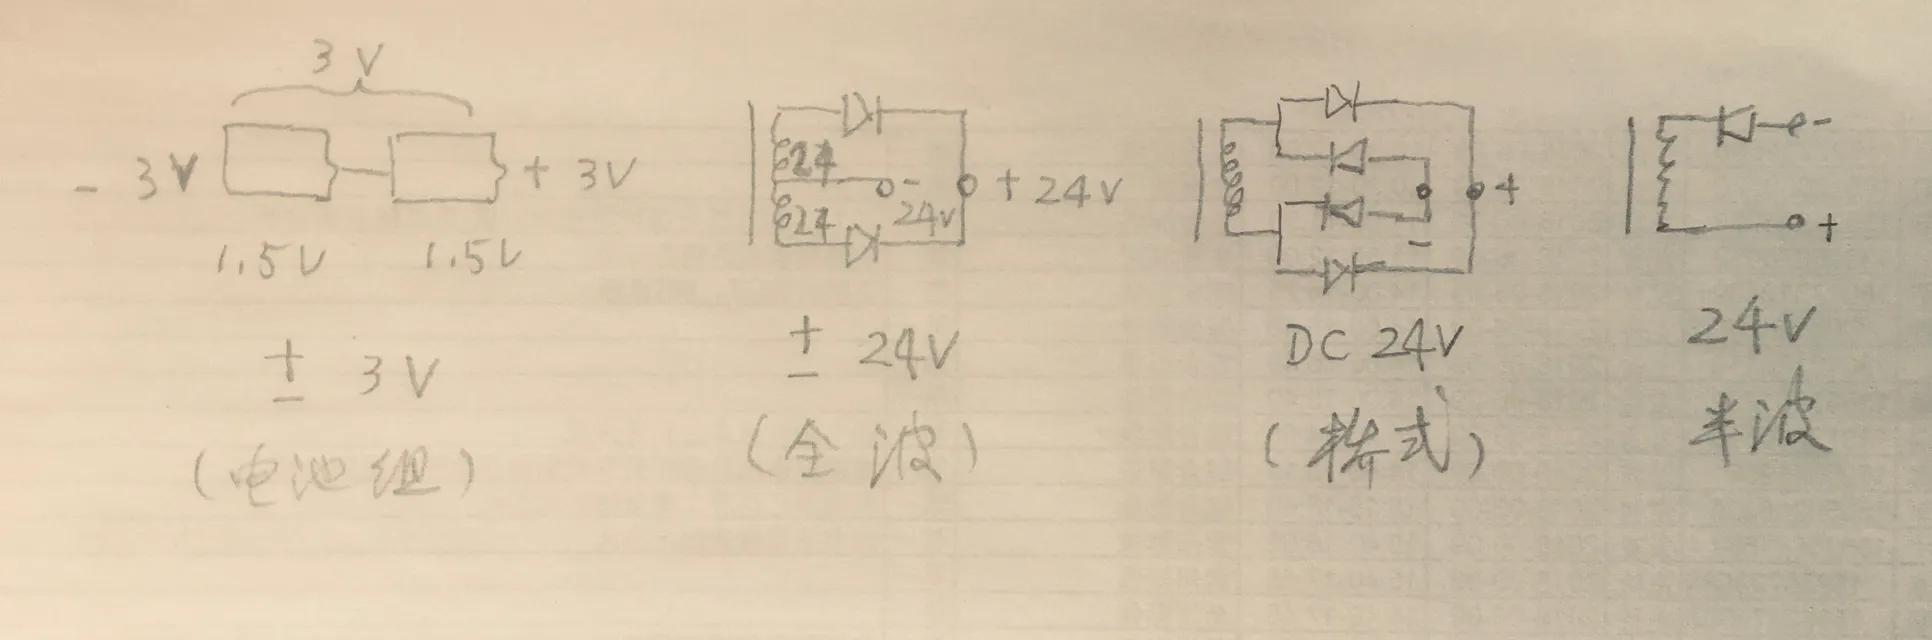 3V
- 3V
+ 3V
1.5V
1.5V
± 3V
(电池组)
24
24
-
24V
+ 24V
± 24V
(全波)
+
-
DC 24V
(桥式)
-
+
24V
半波